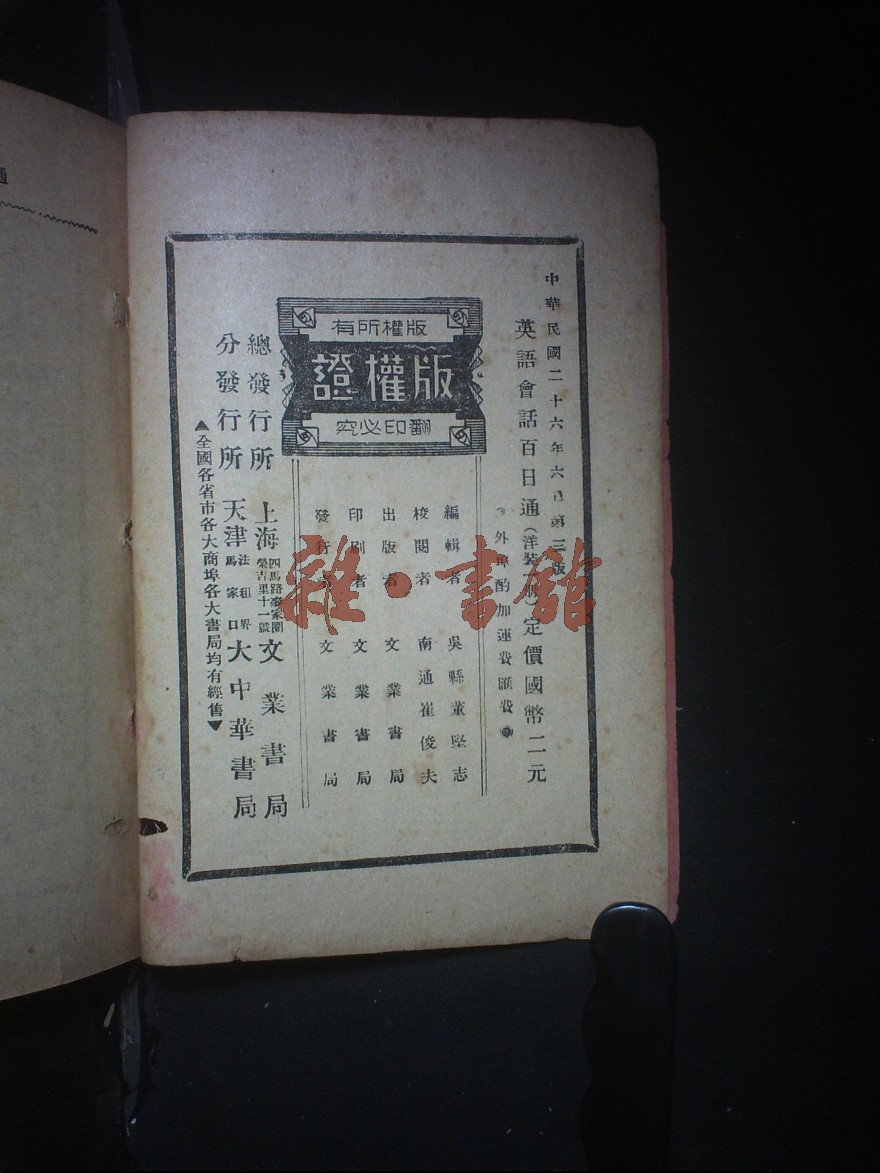 中華民國二十六年六月第三版
英語會話百日通(洋裝 冊)定價國幣二元
外埠酌加運費匯費
版權所有
版權證
翻印必究
編輯者 吳縣董堅志
校閱者 南通崔俊夫
出版者 文業書局
印刷者 文業書局
發行者 文業書局
總發行所 上海 四馬路 榮吉里十一號 文業書局
分發行所 天津 法租界 馬家口 大中華書局
▲全國各省市各大商埠各大書局均有經售▼
雜·書館
通